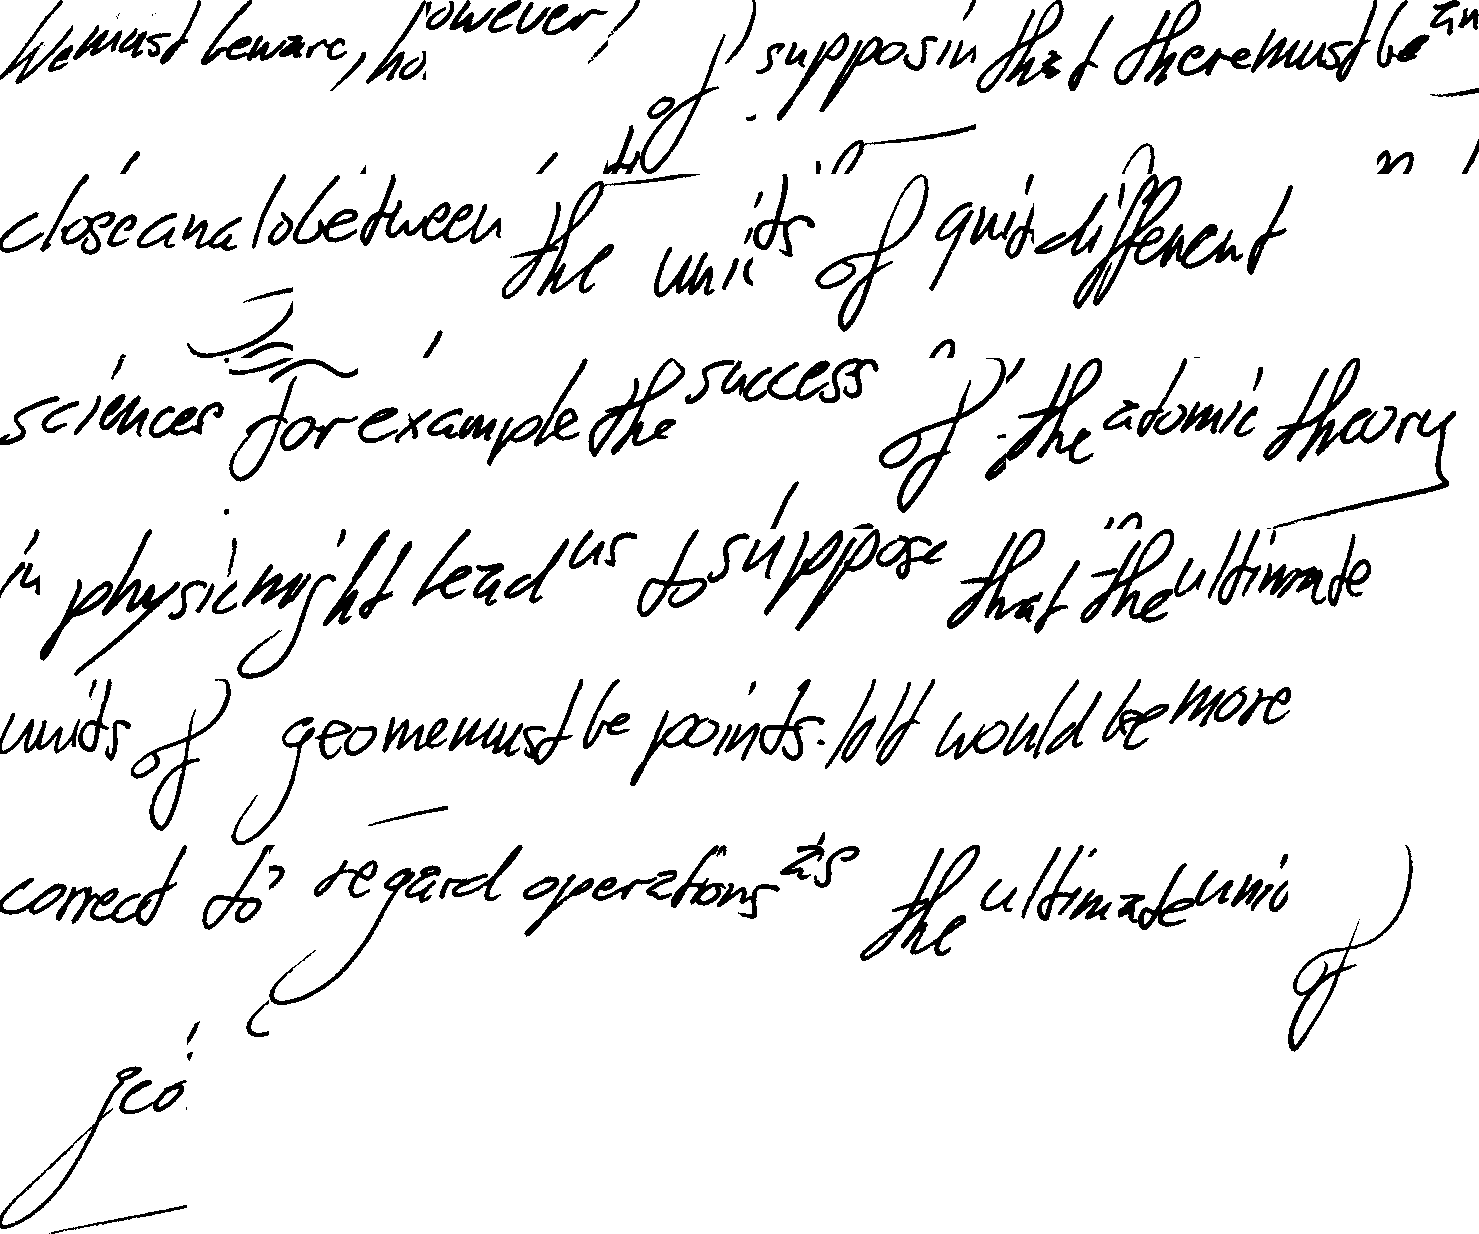 We must beware, ho however, of supposin that there must be an
close analo between the units of quit different
sciences for example the success of the atomic theory
in physic might lead us to suppose that the ultimate
units of geome must be points. It would be more
correct to regard operations as the ultimate uni of
geo